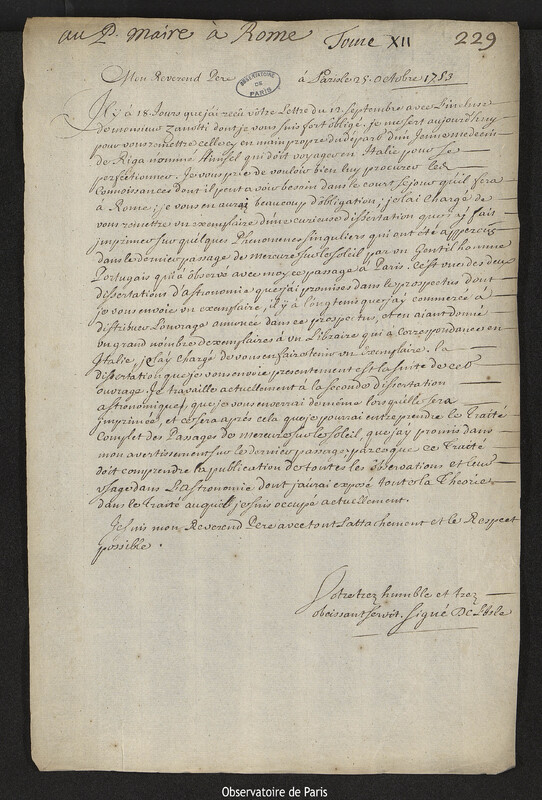 au P. Maire à Rome Tome XII 229
Mon Reverend Pere à Paris le 25. Octobre 1753
OBSERVATOIRE DE PARIS
Il y à 18. Jours que j'ai reçû votre Lettre du 12. Septembre avec l'incluse
de monsieur Zanotti dont je vous suis fort obligé. je me sert aujourd'huy
pour vous remettre celle cy en main propre du départ d'un Jeune medecin
de Riga nommé Hunsel qui doit voyager en Italie pour se
perfectionner. Je vous prie de vouloir bien luy procurer les
Connoissances dont il peut avoir besoin dans le court sejour qu'il fera
à Rome; je vous en aurai beaucoup d'obligation; je l'ai Chargé de
vous remettre un exemplaire d'une curieuse dissertation que j'ay fait
imprimer sur quelques Phenomenes singuliers qui ont été apperçus
dans le dernier passage de mercure sur le Soleil par un Gentilhomme
Portugais qui à observé avec moy ce passage à Paris. C'est une des deux
dissertations d'Astronomie que j'ai promises dans le prospectus dont
je vous envoie un exemplaire, il y à longtems que j'ay commencé à
distribuer l'ouvrage annoncé dans ce prospectus, et en aiant donné
un grand nombre d'exemplaires à un Libraire qui à correspondance en
Italie, je l'ay Chargé de vous en faire tenir un Exemplaire. La
dissertation que je vous envoie presentement est la suite de cet
ouvrage. Je travaille actuellement à la seconde dissertation
astronomique, que je vous enverrai de même lorsqu'elle sera
imprimée, et ce sera après cela que je pourrai entreprendre le Traité
Complet des Passages de mercure sur le Soleil, que j'ay promis dans
mon avertissement sur le dernier passage parceque ce Traité
doit comprendre la publication de toutes les observations et leur
usage dans l'Astronomie dont j'aurai exposé toute la Theorie
dans le Traité auquel je suis occupé actuellement.
Je suis mon Reverend Pere avec tout l'attachement et le Respect
possible.
Votre trez humble et trez
obeissant servit. Signé De L'Isle
Observatoire de Paris